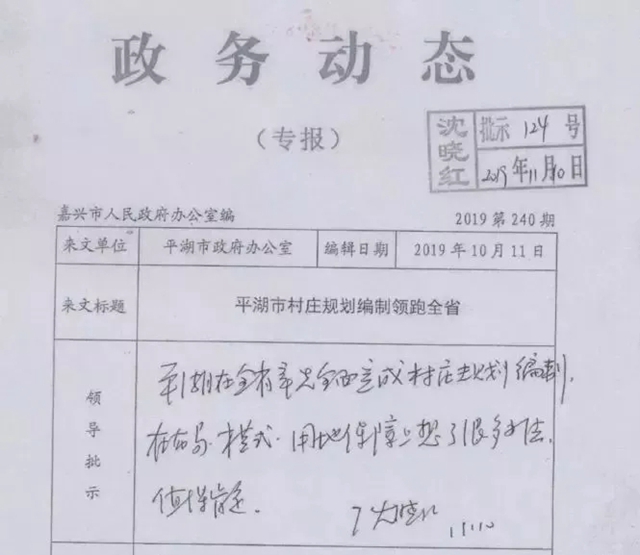 政务动态
（专报）
沈晓红
批示 124 号
2019年11月10日
嘉兴市人民政府办公室编
2019 第 240 期
来文单位 平湖市政府办公室 编辑日期 2019 年 10 月 11 日
来文标题 平湖市村庄规划编制领跑全省
领导批示
平湖在全省率先全面完成村庄规划编制，
在布局、模式、用地保障上想了很多办法，
值得肯定。
11.10